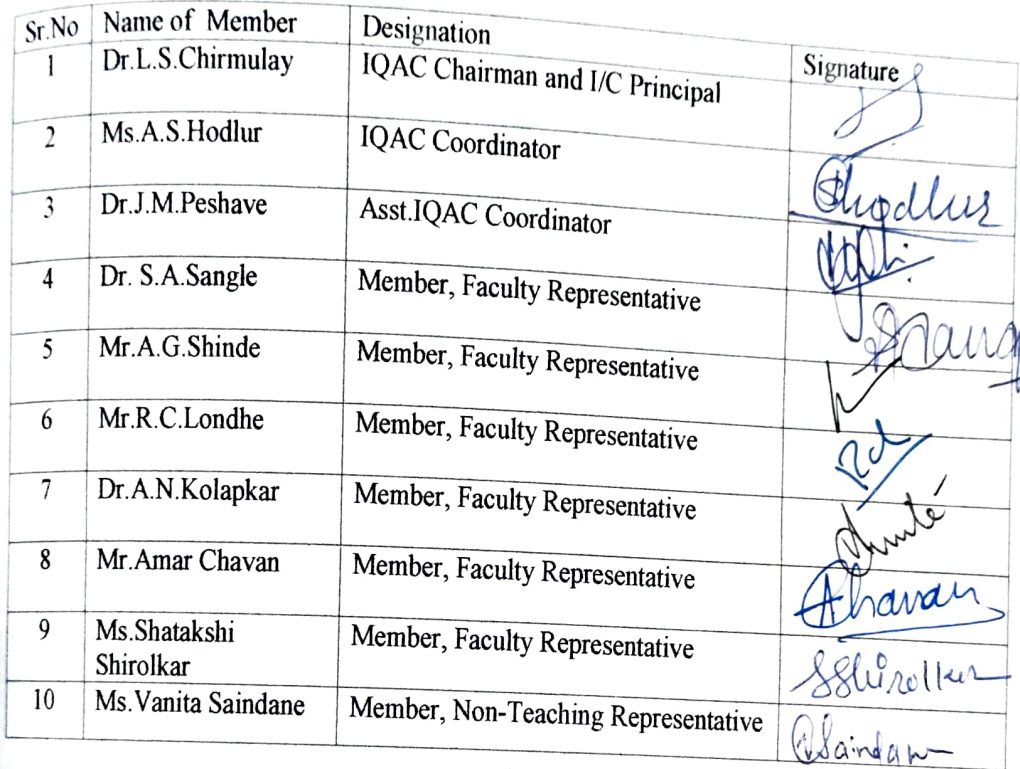 Sr.No Name of Member Designation Signature
1 Dr.L.S.Chirmulay IQAC Chairman and I/C Principal
2 Ms.A.S.Hodlur IQAC Coordinator Shodlur
3 Dr.J.M.Peshave Asst.IQAC Coordinator
4 Dr. S.A.Sangle Member, Faculty Representative
5 Mr.A.G.Shinde Member, Faculty Representative
6 Mr.R.C.Londhe Member, Faculty Representative
7 Dr.A.N.Kolapkar Member, Faculty Representative
8 Mr.Amar Chavan Member, Faculty Representative AChavan
9 Ms.Shatakshi Member, Faculty Representative SShirolkar
Shirolkar
10 Ms.Vanita Saindane Member, Non-Teaching Representative